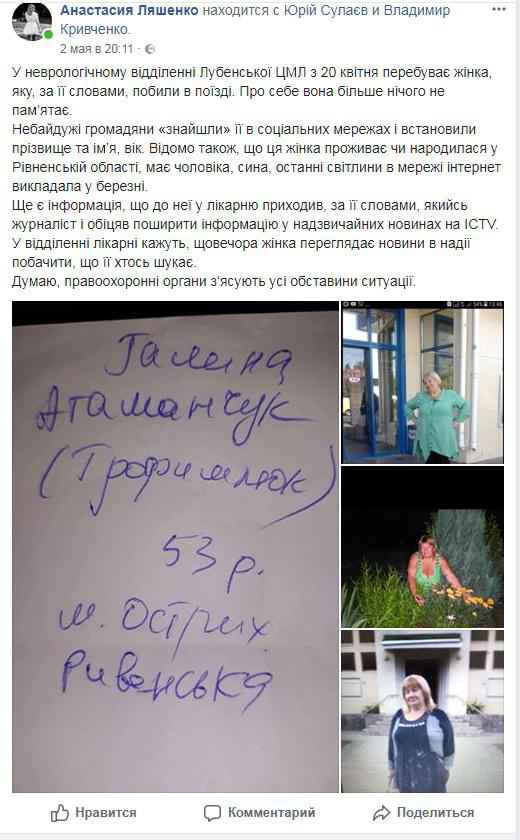 Анастасия Ляшенко находится с Юрій Сулаєв и Владимир
Кривченко.
2 мая в 20:11
У неврологічному відділенні Лубенської ЦМЛ з 20 квітня перебуває жінка,
яку, за її словами, побили в поїзді. Про себе вона більше нічого не
пам'ятає.
Небайдужі громадяни «знайшли» її в соціальних мережах і встановили
прізвище та ім'я, вік. Відомо також, що ця жінка проживає чи народилася у
Рівненській області, має чоловіка, сина, останні світлини в мережі інтернет
викладала у березні.
Ще є інформація, що до неї у лікарню приходив, за її словами, якийсь
журналіст і обіцяв поширити інформацію у надзвичайних новинах на ICTV.
У відділенні лікарні кажуть, щовечора жінка переглядає новини в надії
побачити, що її хтось шукає.
Думаю, правоохоронні органи з'ясують усі обставини ситуації.
Галина
Атаманчук
(Трофимлюк)
53 р.
м. Острих
Ривенська
Нравится
Комментарий
Поделиться